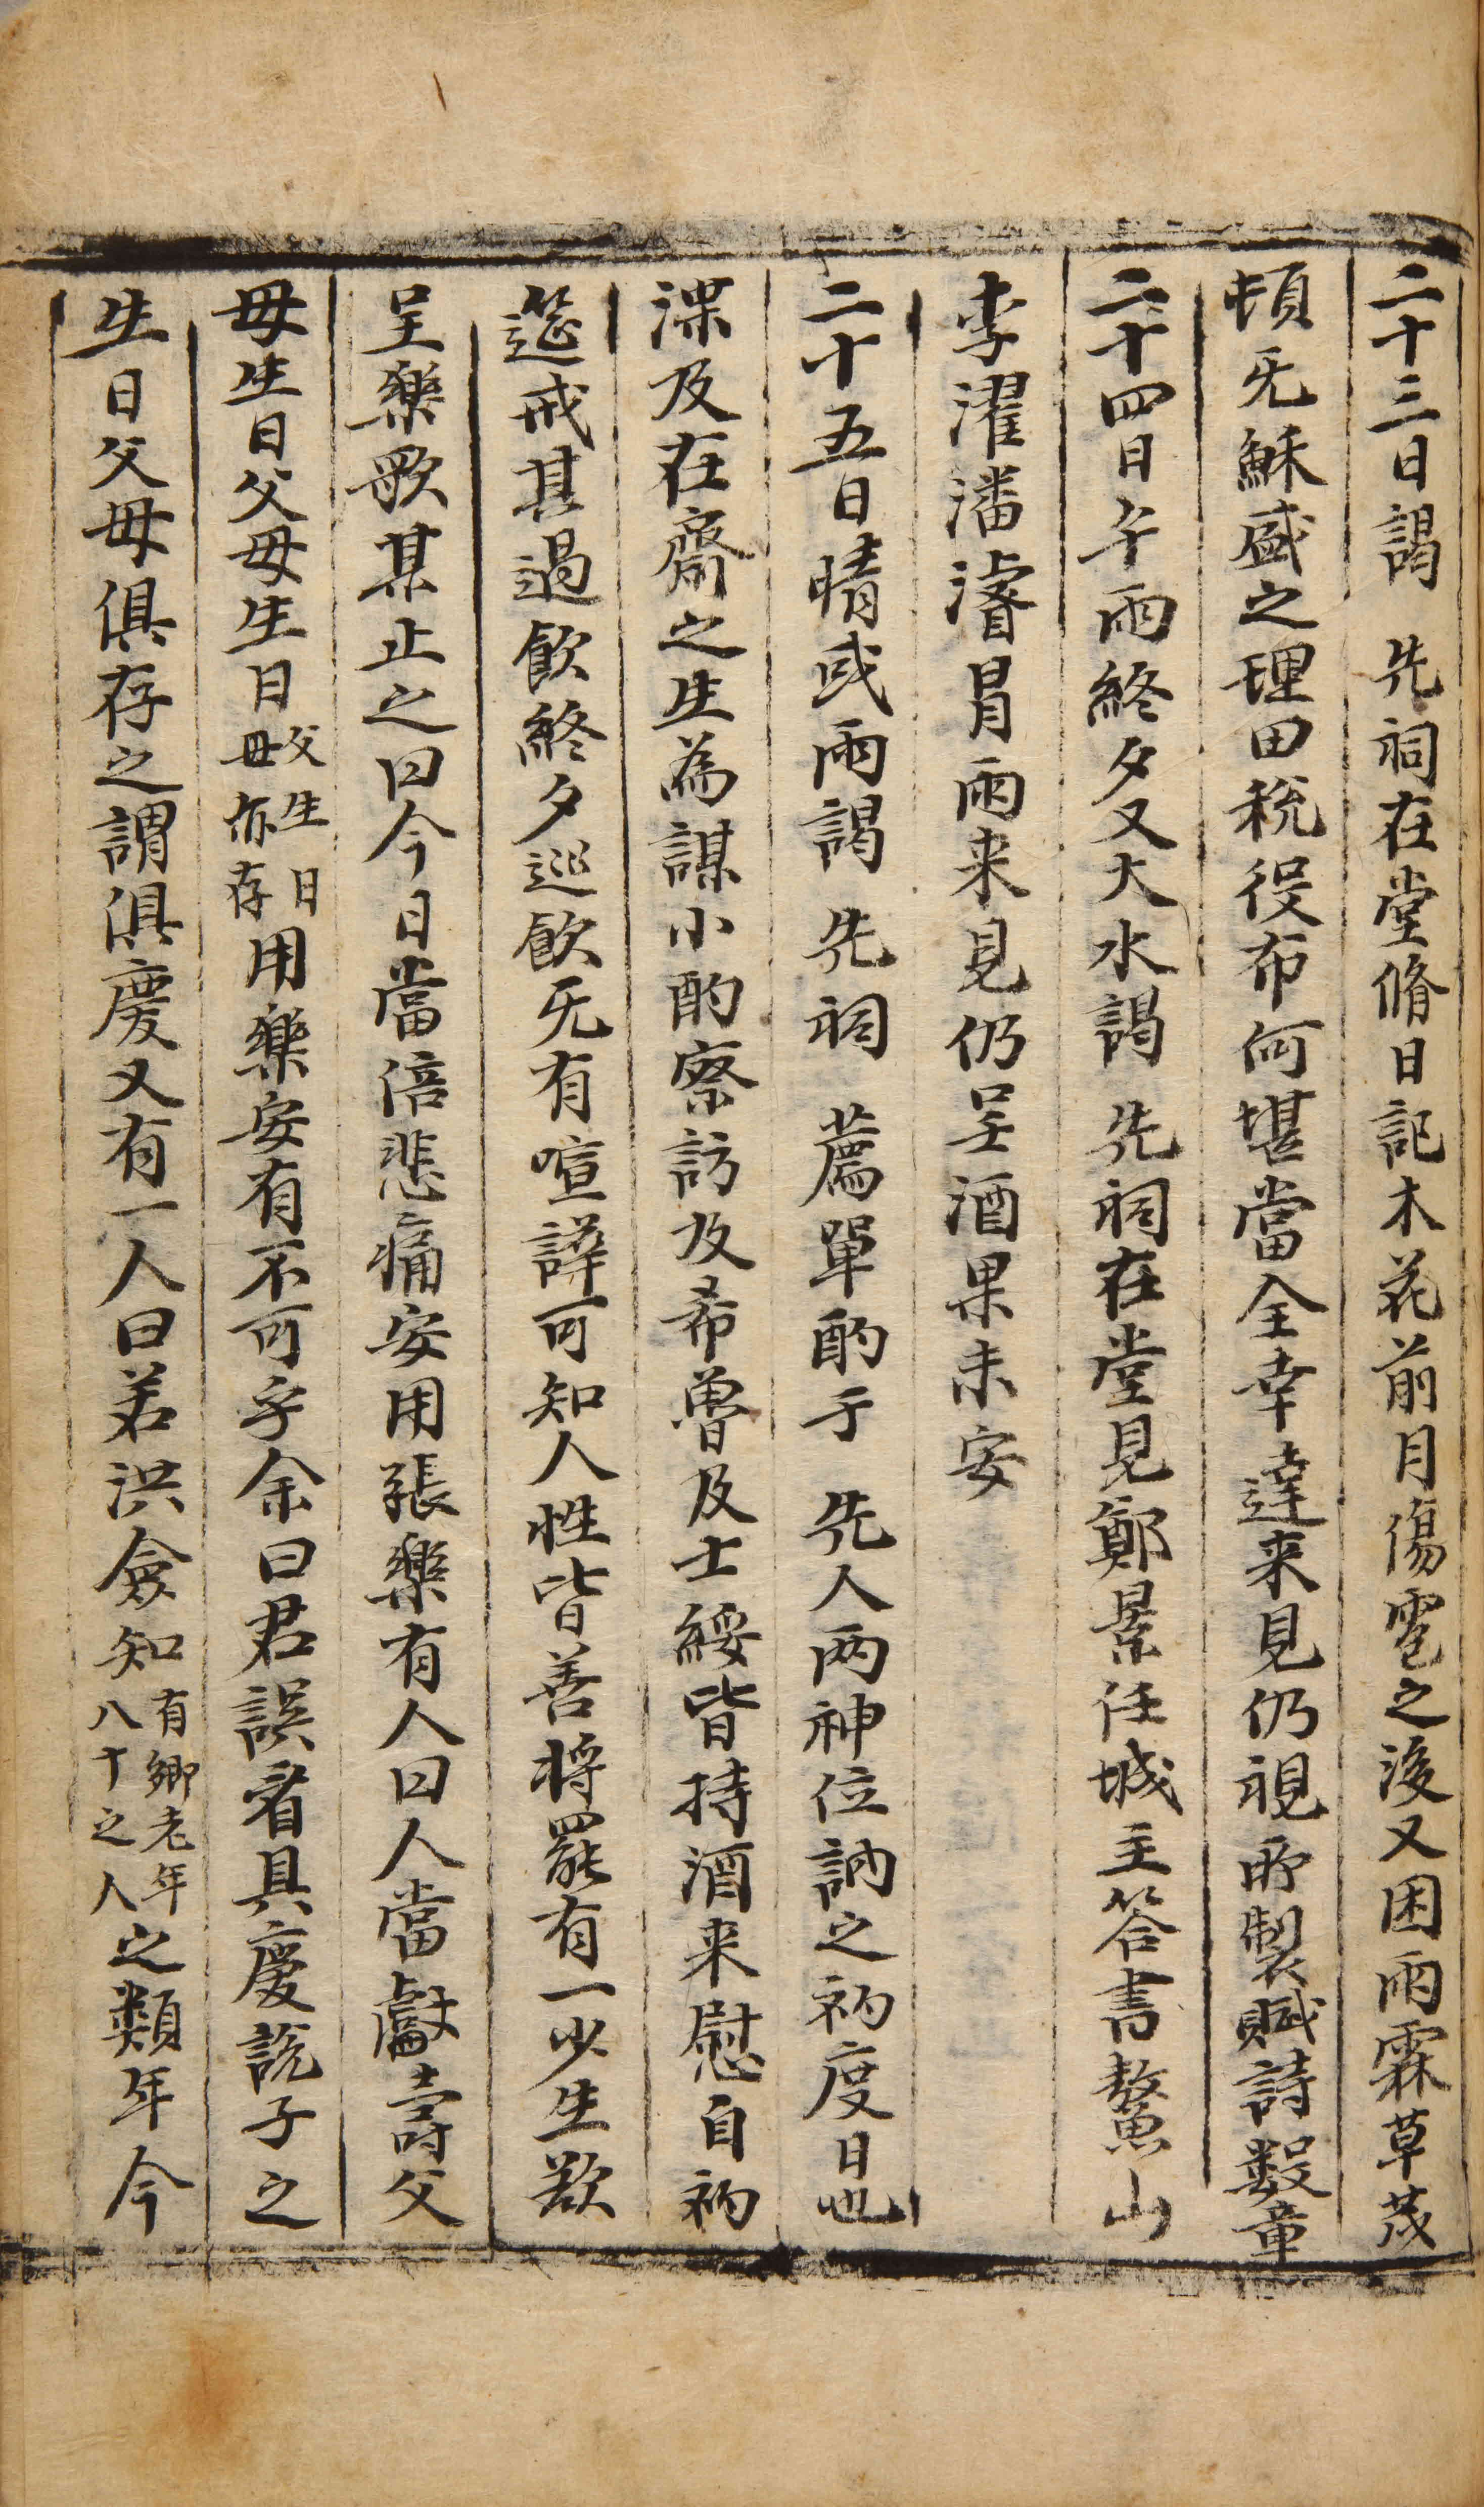 二十三日謁 先祠在堂脩日記木花前月傷雹之後又困雨霖草茂
頓旡穌盛之理田稅役布何堪當全幸達来見仍覌所製賦詩數章
二十四日午雨終夕又大水謁 先祠在堂見鄭景任城主答書鰲山
李濯潘濬冒雨来見仍呈酒果未安
二十五日晴或雨謁 先祠 薦單酌于 先人两神位訥之初度日也
淉及在齋之生為謀小酌察訪及希魯及士綏皆持酒来慰自初
筵戒其過飲終夕巡飲旡有喧譁可知人性皆善将罷有一少生欲
呈樂歌某止之曰今日當倍悲痛安用張樂有人曰人當獻壽父
母生日父母生日父生日母亦存用樂安有不可乎余曰君誤看具慶說子之
生日父母俱存之謂俱慶又有一人曰若洪僉知有鄉老年八十之人之類年今